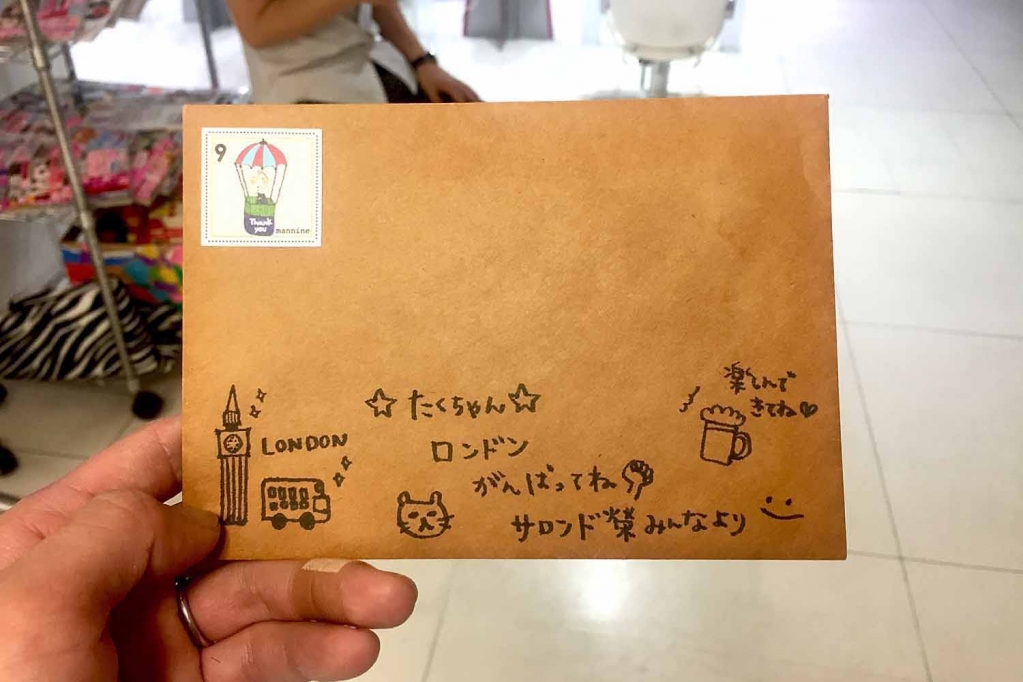 9
Thank
you
mannine
LONDON
☆たくちゃん☆
ロンドン
がんばってね
サロンド榮 みんなより
楽しんで
きてね♡